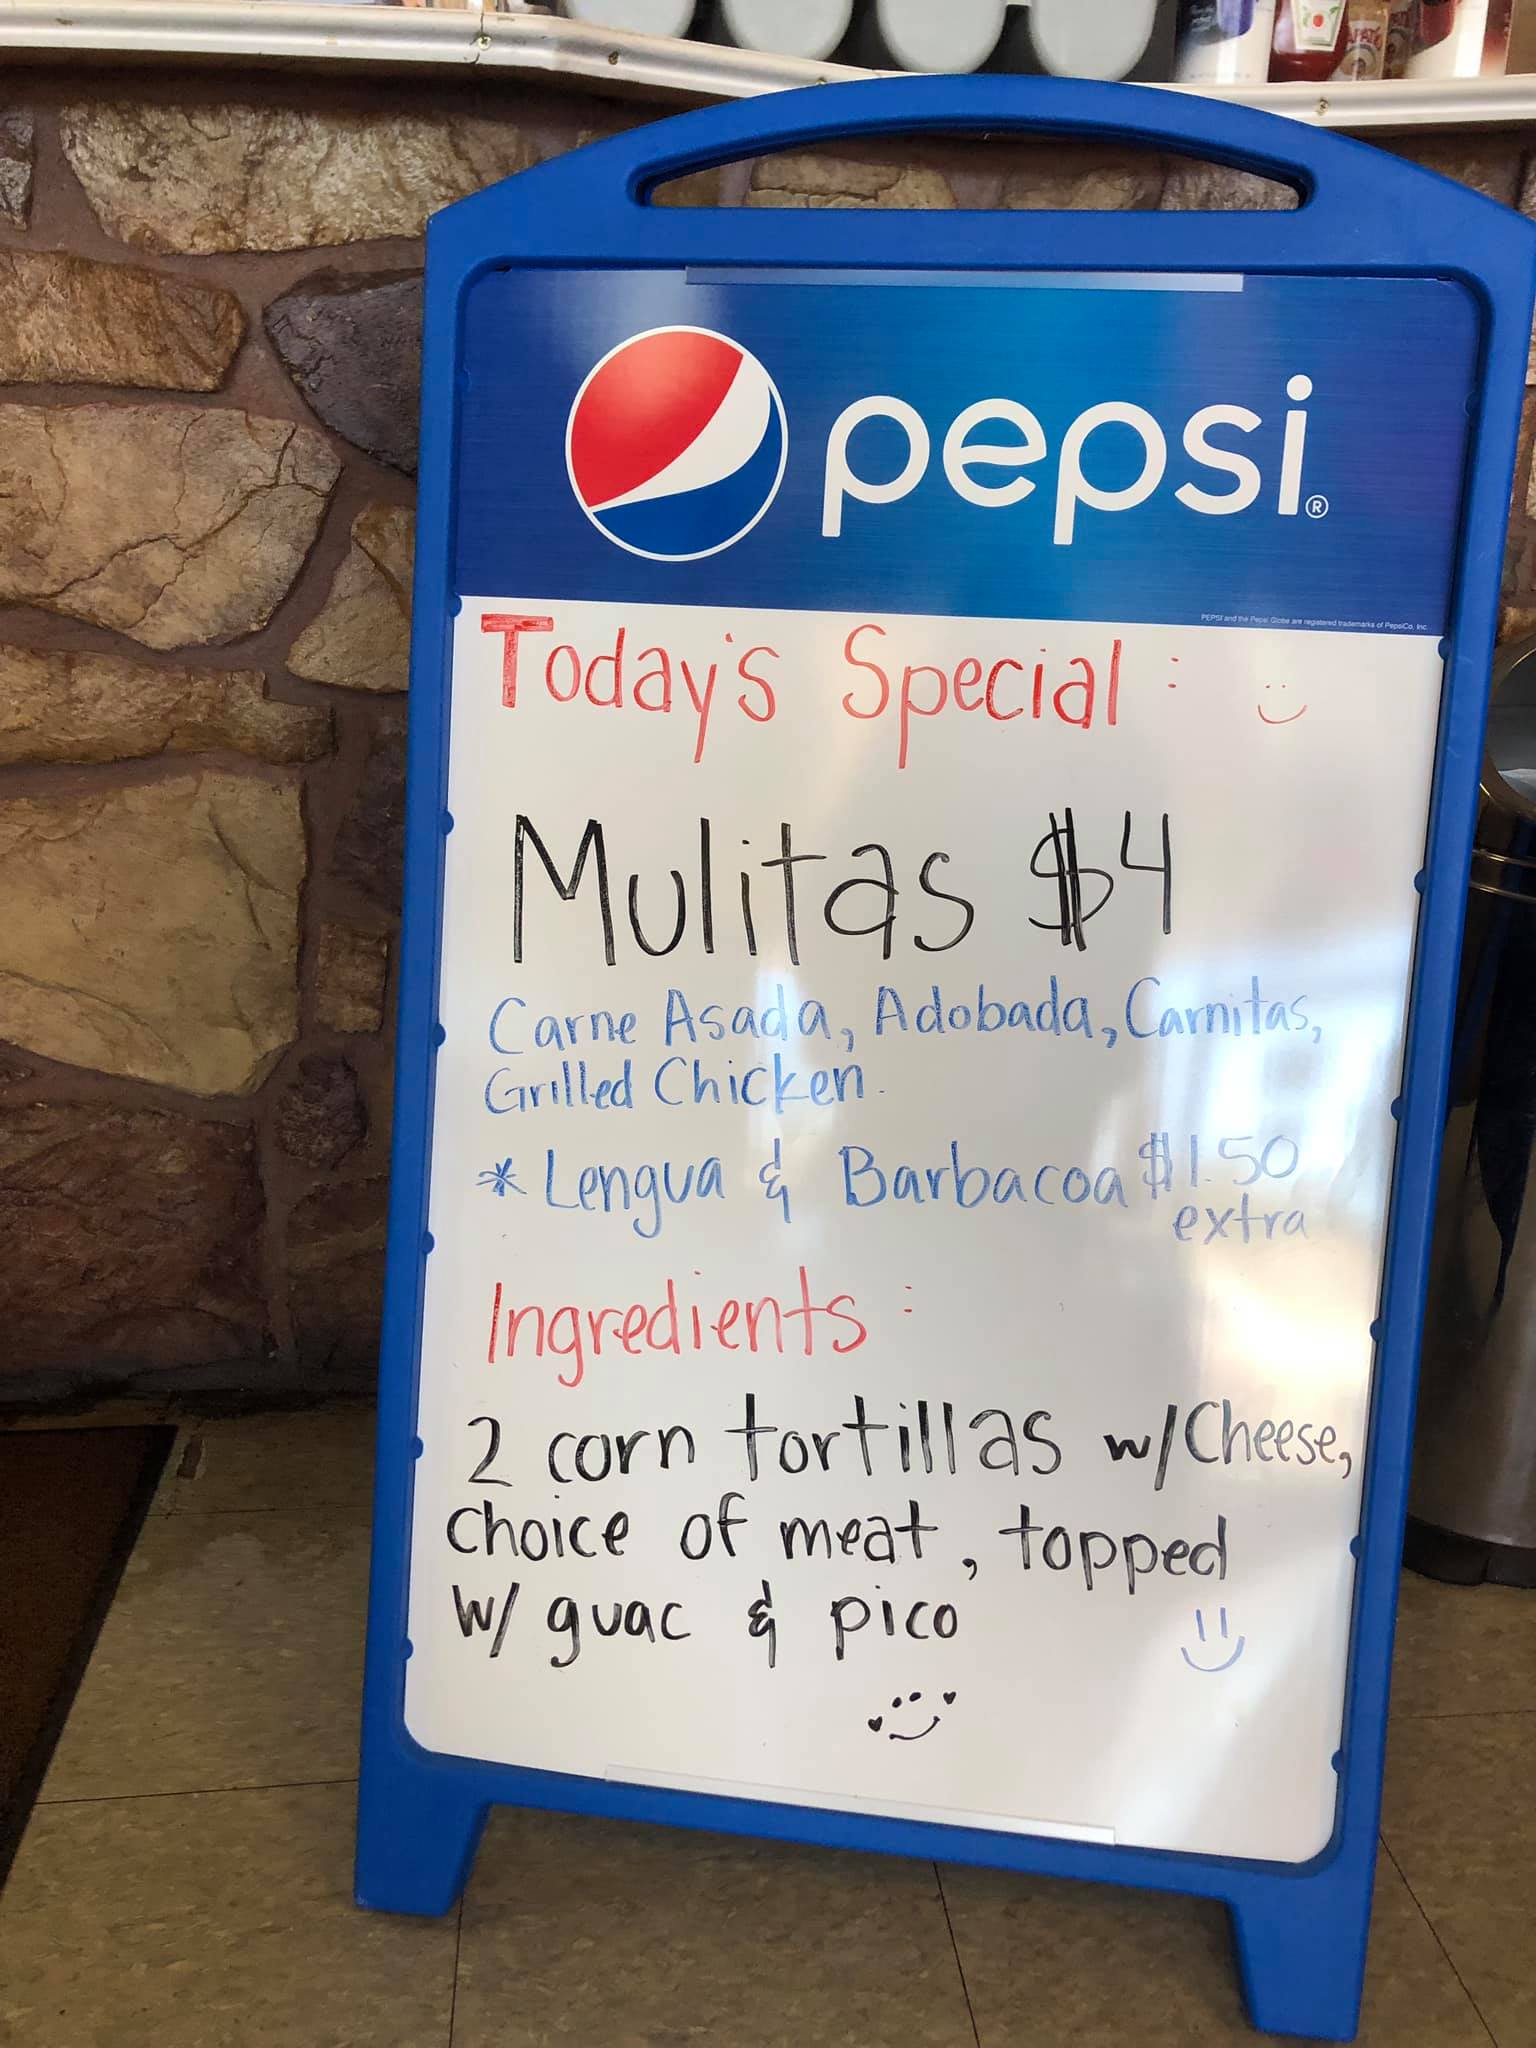 pepsi®
PEPSI and the Pepsi Globe are registered trademarks of PepsiCo, Inc.
Today's Special :
Mulitas $4
Carne Asada, Adobada, Carnitas,
Grilled Chicken.
* Lengua & Barbacoa $1.50
extra
Ingredients :
2 corn tortillas w/ Cheese,
choice of meat, topped
w/ guac & pico